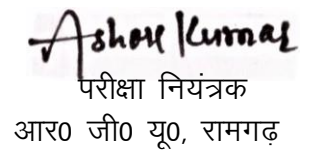 Ashok Kumar
परीक्षा नियंत्रक
आर0 जी0 यू0, रामगढ़